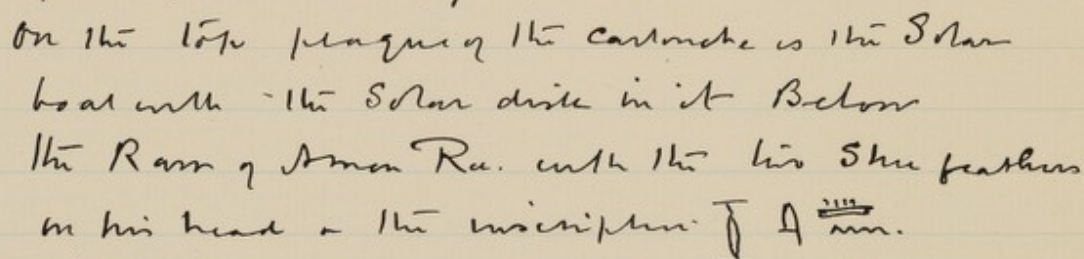 on the top plaque of the cartouche is the Solar
boat with the Solar disk in it Below
the Ram of Amon Ra. with the two Shu feathers
on his head & the inscription 𓊹 𓇋 𓏠𓈖.